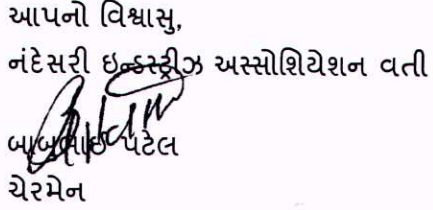 આપનો વિશ્વાસુ,
નંદેસરી ઇન્ડસ્ટ્રીઝ અસ્સોશિયેશન વતી
બાબુભાઈ પટેલ
ચેરમેન